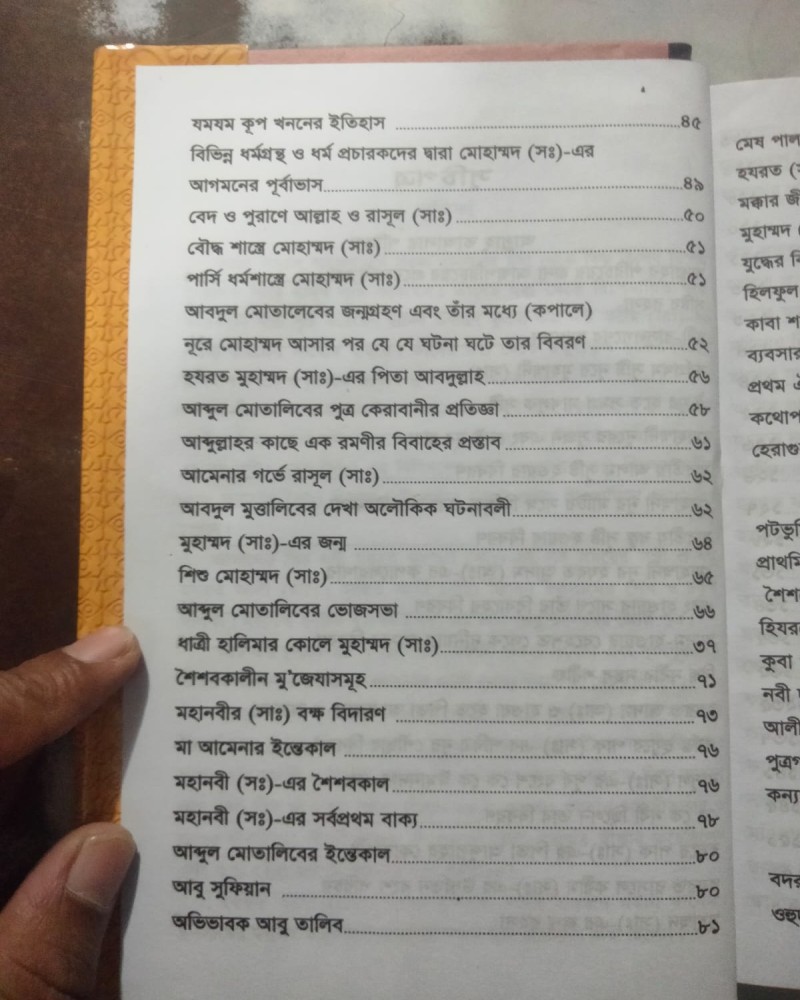 যমযম কূপ খননের ইতিহাস ..........৪৫
বিভিন্ন ধর্মগ্রন্থ ও ধর্ম প্রচারকদের দ্বারা মোহাম্মদ (সঃ)-এর
আগমনের পূর্বাভাস..........৪৯
বেদ ও পুরাণে আল্লাহ ও রাসূল (সাঃ) ..........৫০
বৌদ্ধ শাস্ত্রে মোহাম্মদ (সাঃ) ..........৫১
পার্সি ধর্মশাস্ত্রে মোহাম্মদ (সাঃ) ..........৫১
আবদুল মোতালেবের জন্মগ্রহণ এবং তাঁর মধ্যে (কপালে)
নূরে মোহাম্মদ আসার পর যে যে ঘটনা ঘটে তার বিবরণ ..........৫২
হযরত মুহাম্মদ (সাঃ)-এর পিতা আবদুল্লাহ..........৫৬
আব্দুল মোতালিবের পুত্র কেরাবানীর প্রতিজ্ঞা..........৫৮
আব্দুল্লাহর কাছে এক রমণীর বিবাহের প্রস্তাব ..........৬১
আমেনার গর্ভে রাসূল (সাঃ)..........৬২
আবদুল মুত্তালিবের দেখা অলৌকিক ঘটনাবলী..........৬২
মুহাম্মদ (সাঃ)-এর জন্ম ..........৬৪
শিশু মোহাম্মদ (সাঃ)..........৬৫
আব্দুল মোতালিবের ভোজসভা ..........৬৬
ধাত্রী হালিমার কোলে মুহাম্মদ (সাঃ)..........৩৭
শৈশবকালীন মু'জেযাসমূহ..........৭১
মহানবীর (সাঃ) বক্ষ বিদারণ ..........৭৩
মা আমেনার ইন্তেকাল ..........৭৬
মহানবী (সঃ)-এর শৈশবকাল..........৭৬
মহানবী (সঃ)-এর সর্বপ্রথম বাক্য..........৭৮
আব্দুল মোতালিবের ইন্তেকাল..........৮০
আবু সুফিয়ান ..........৮০
অভিভাবক আবু তালিব..........৮১
মেষ
হযরত
মক্কার
মুহাম্মদ
যুদ্ধের
হিলফুল
কাবা
প্রথম
কুবা
নবী